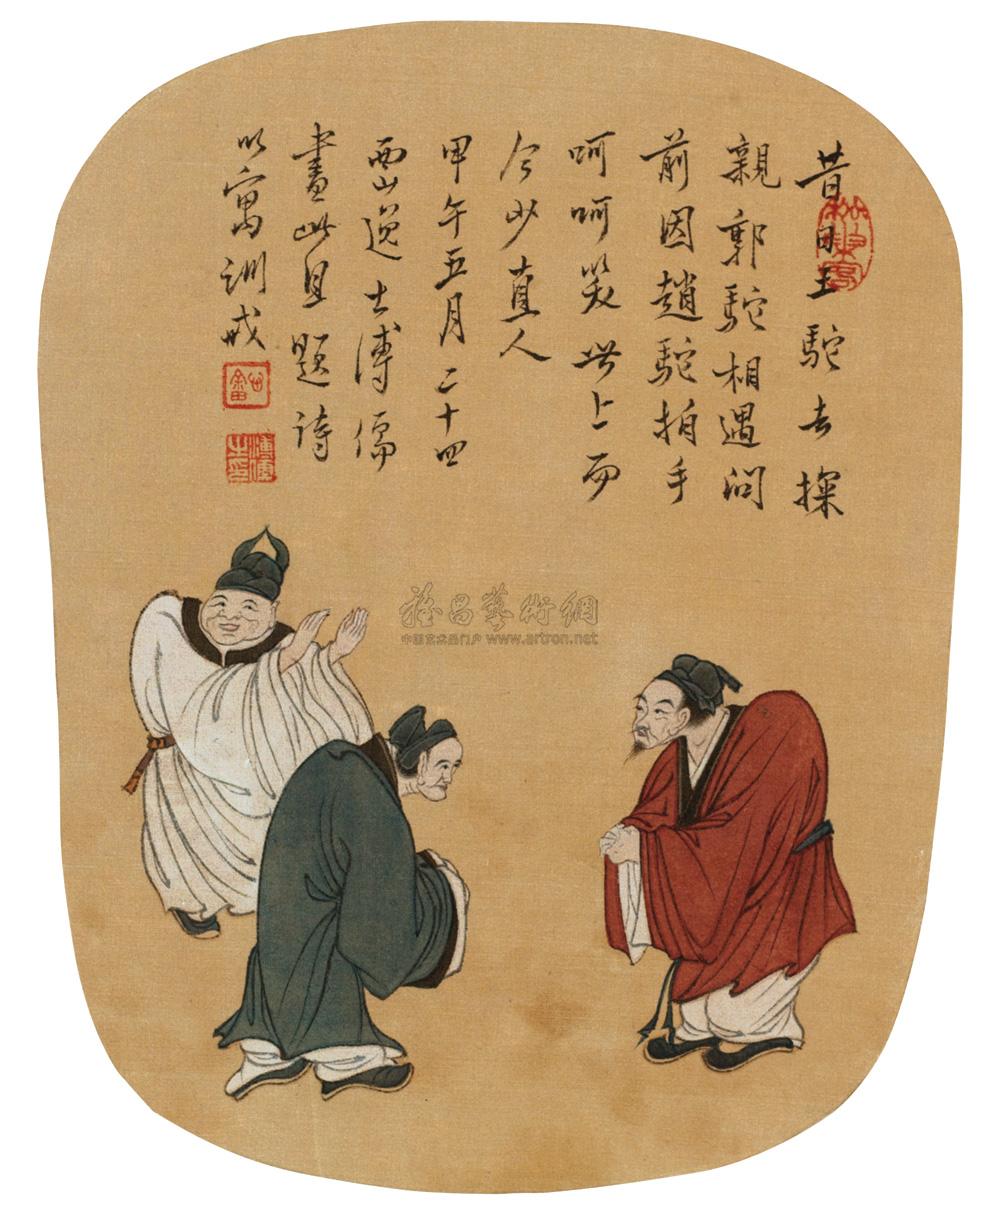 昔日王駝去探
親郭駝相遇問
前因趙駝拍手
呵呵笑世上而
今少直人
甲午五月二十四
西山逸士溥儒
畫此且題詩
以寓訓戒
溥儒之印
雅昌藝術網
中国艺术品门户 www.artron.net